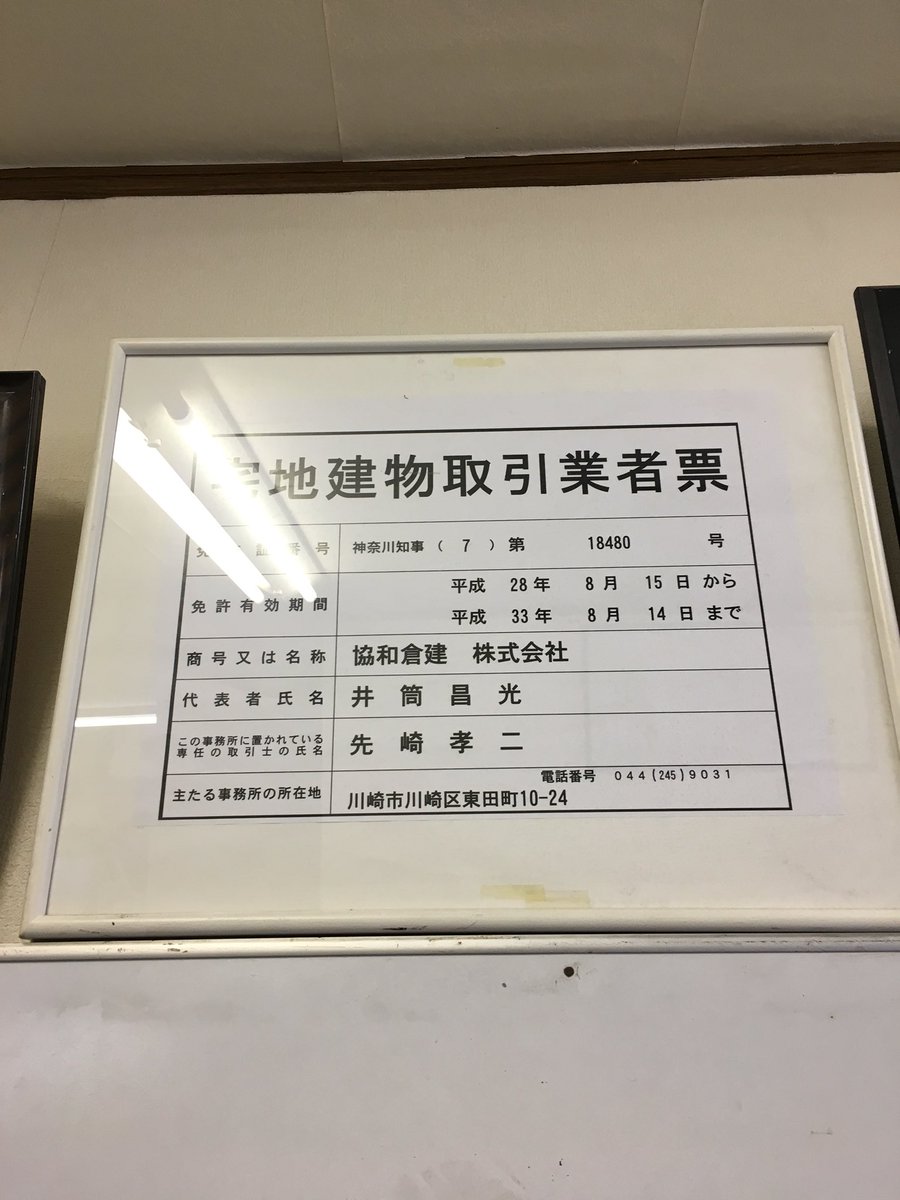 宅地建物取引業者票
免許証番号 神奈川知事 ( 7 ) 第 18480 号
免許有効期間 平成 28年 8月 15日 から
平成 33年 8月 14日 まで
商号又は名称 協和倉建 株式会社
代表者氏名 井筒昌光
この事務所に置かれている
専任の取引士の氏名 先崎孝二
電話番号 044(245)9031
主たる事務所の所在地 川崎市川崎区東田町10-24